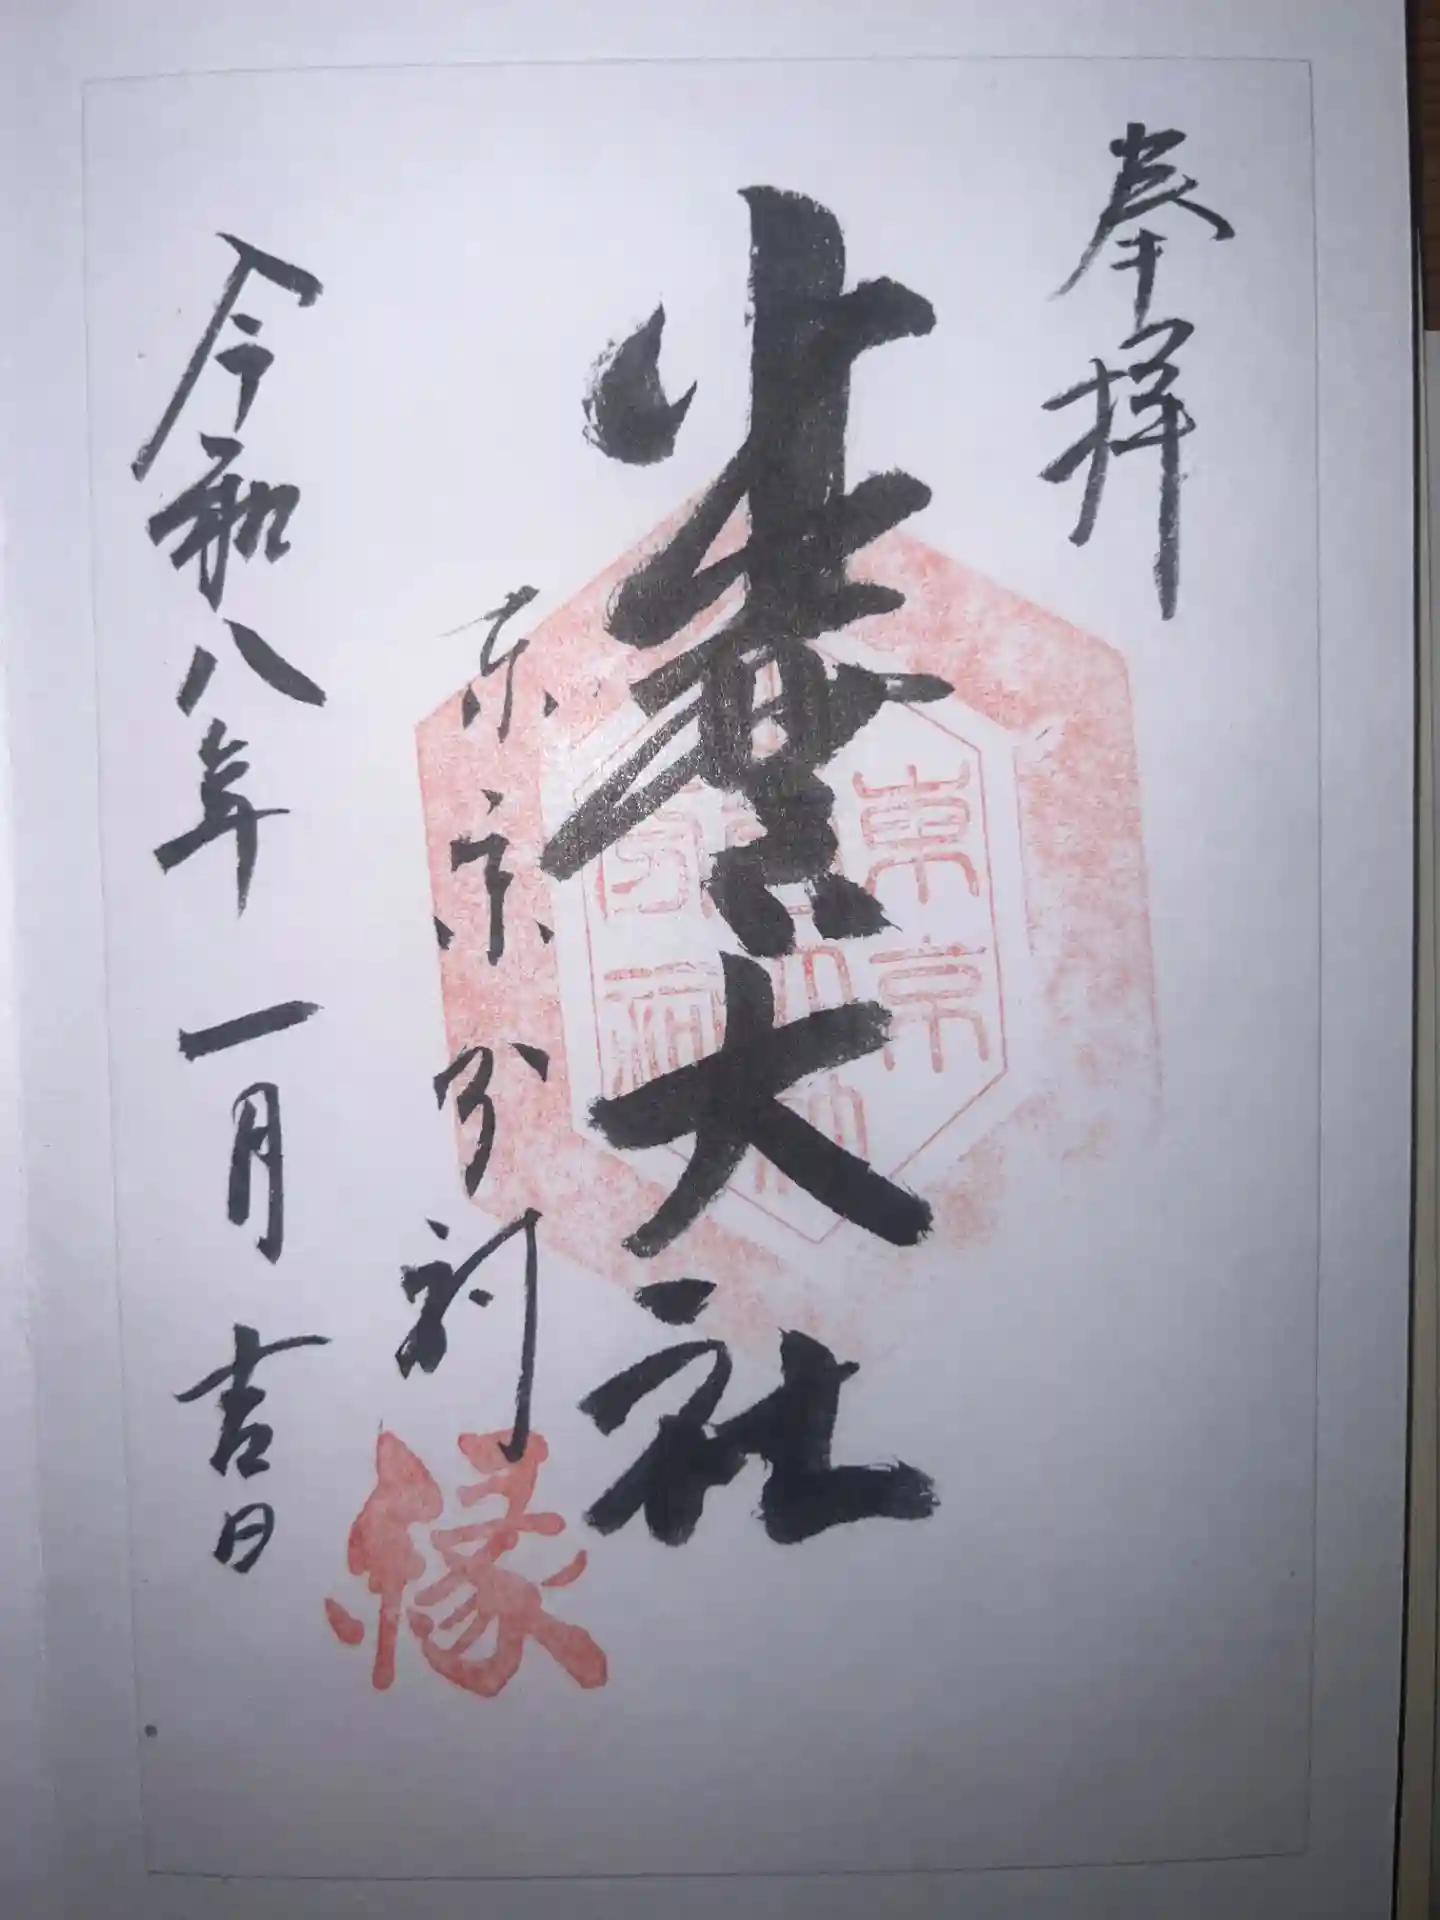 奉拝
出雲大社
東京分祠
令和八年 一月 吉日
東京
分祠
縁